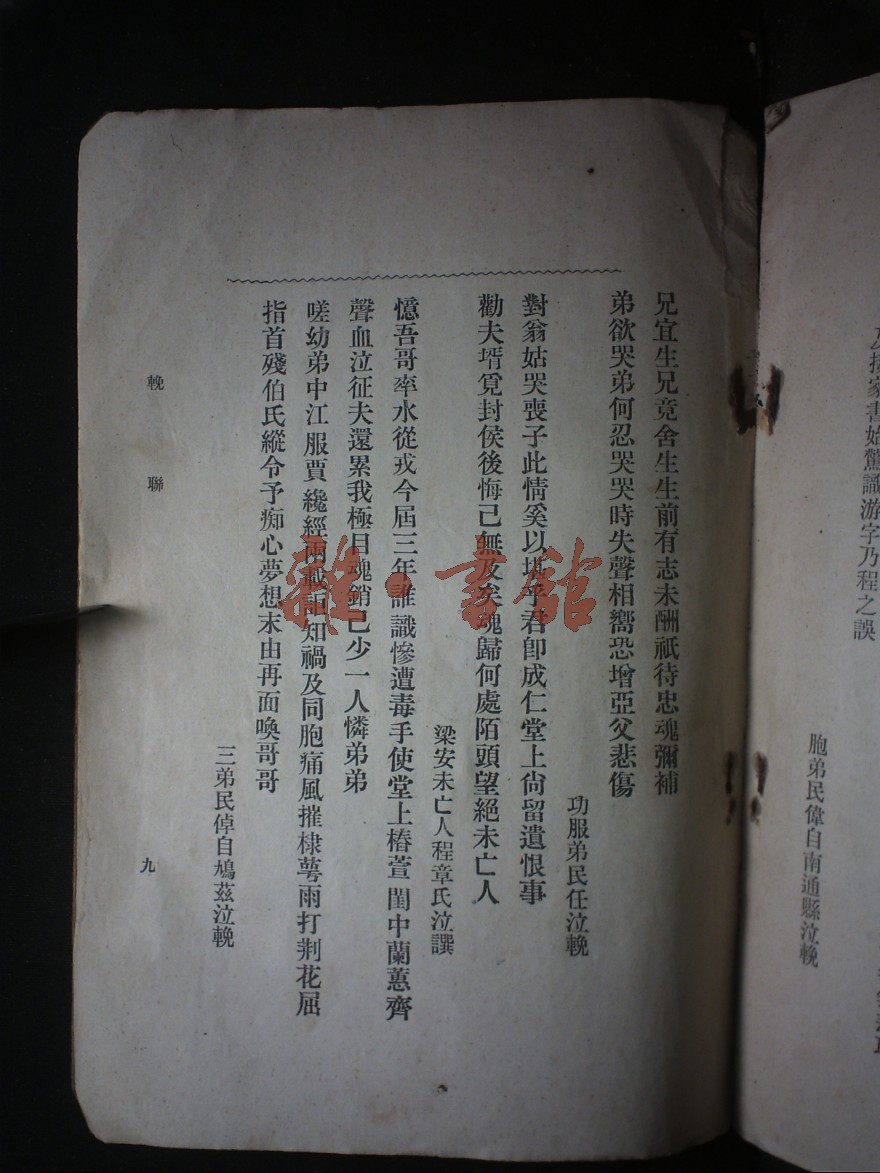 及接家書始驚識游字乃程之誤
胞弟民偉自南通縣泣輓
兄宜生兄竟舍生生前有志未酬祇待忠魂彌補
弟欲哭弟何忍哭哭時失聲相嚮恐增亞父悲傷
功服弟民任泣輓
對翁姑哭喪子此情奚以堪乎君卽成仁堂上尙留遺恨事
勸夫壻覓封侯後悔已無及矣魂歸何處陌頭望絕未亡人
梁安未亡人程章氏泣譔
憶吾哥率水從戎今屆三年誰識慘遭毒手使堂上椿萱閨中蘭蕙齊
聲血泣征夫還累我極目魂銷已少一人憐弟弟
嗟幼弟中江服賈纔經兩載詎知禍及同胞痛風摧棣萼雨打荆花屈
指首殘伯氏縱令予痴心夢想末由再面喚哥哥
三弟民倬自鳩茲泣輓
輓聯
九
雜·書館